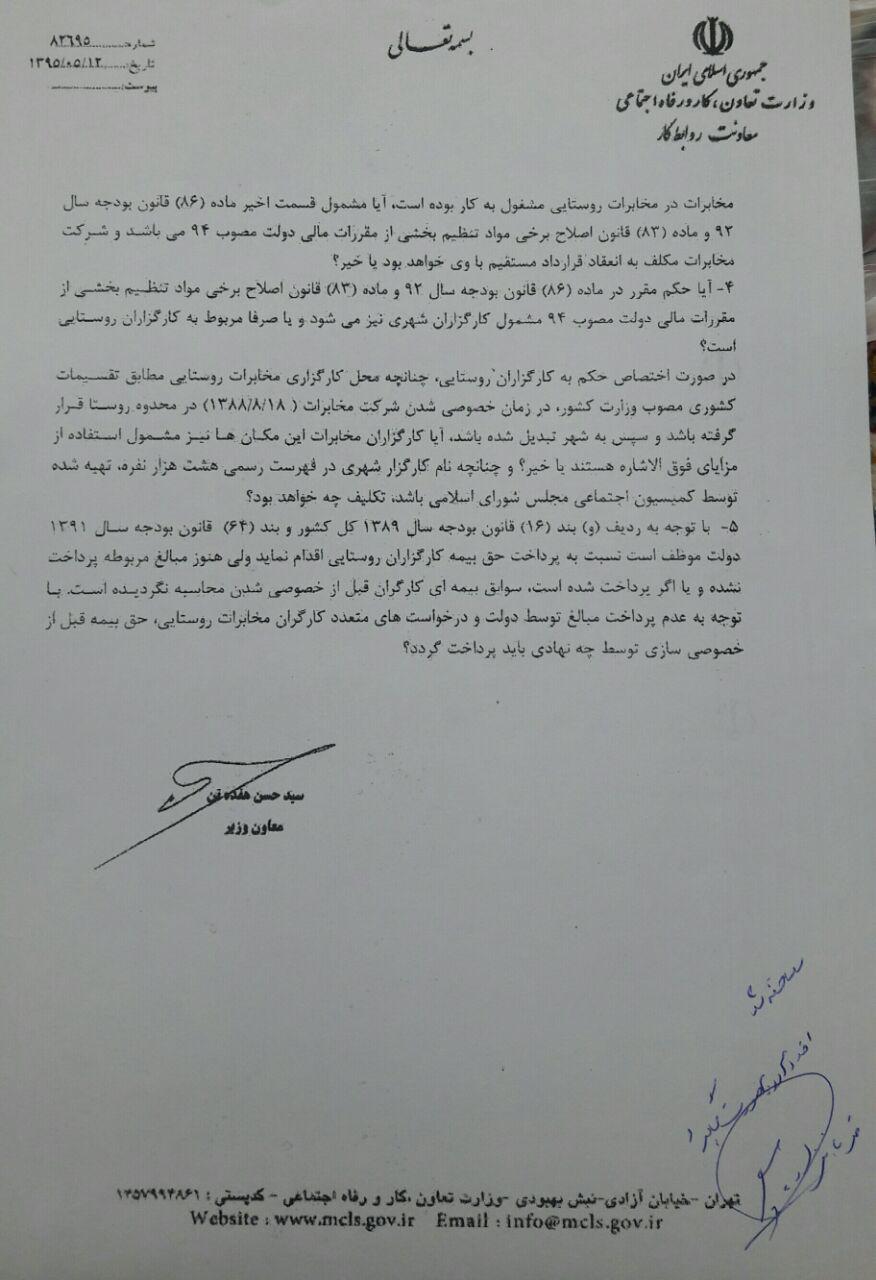 بسمه تعالی
جمهوری اسلامی ایران
وزارت تعاون، کار و رفاه اجتماعی
معاونت روابط کار
شماره: ۸۲۶۹۵
تاریخ: ۱۳۹۵/۰۵/۱۲
پیوست:
مخابرات در مخابرات روستایی مشغول به کار بوده است، آیا مشمول قسمت اخیر ماده (۸۶) قانون بودجه سال
۹۲ و ماده (۸۳) قانون اصلاح برخی مواد تنظیم بخشی از مقررات مالی دولت مصوب ۹۴ می باشد و شرکت
مخابرات مکلف به انعقاد قرارداد مستقیم با وی خواهد بود یا خیر؟
۴- آیا حکم مقرر در ماده (۸۶) قانون بودجه سال ۹۲ و ماده (۸۳) قانون اصلاح برخی مواد تنظیم بخشی از
مقررات مالی دولت مصوب ۹۴ مشمول کارگزاران شهری نیز می شود و یا صرفا مربوط به کارگزاران روستایی
است؟
در صورت اختصاص حکم به کارگزاران روستایی، چنانچه محل کارگزاری مخابرات روستایی مطابق تقسیمات
کشوری مصوب وزارت کشور، در زمان خصوصی شدن شرکت مخابرات ( ۱۳۸۸/۸/۱۸) در محدوده روستا قرار
گرفته باشد و سپس به شهر تبدیل شده باشد، آیا کارگزاران مخابرات این مکان ها نیز مشمول استفاده از
مزایای فوق الاشاره هستند یا خیر؟ و چنانچه نام کارگزار شهری در فهرست رسمی هشت هزار نفره، تهیه شده
توسط کمیسیون اجتماعی مجلس شورای اسلامی باشد، تکلیف چه خواهد بود؟
۵- با توجه به ردیف (و) بند (۱۶) قانون بودجه سال ۱۳۸۹ کل کشور و بند (۶۴) قانون بودجه سال ۱۳۹۱
دولت موظف است نسبت به پرداخت حق بیمه کارگزاران روستایی اقدام نماید ولی هنوز مبالغ مربوطه پرداخت
نشده و یا اگر پرداخت شده است، سوابق بیمه ای کارگران قبل از خصوصی شدن محاسبه نگردیده است. با
توجه به عدم پرداخت مبالغ توسط دولت و درخواست های متعدد کارگران مخابرات روستایی، حق بیمه قبل از
خصوصی سازی توسط چه نهادی باید پرداخت گردد؟
سید حسن هفده تن
معاون وزیر
تهران -خیابان آزادی-نبش بهبودی -وزارت تعاون ،کار و رفاه اجتماعی - کدپستی : ۱۴۵۷۹۹۴۸۶۱
Website : www.mcls.gov.ir Email : info@mcls.gov.ir